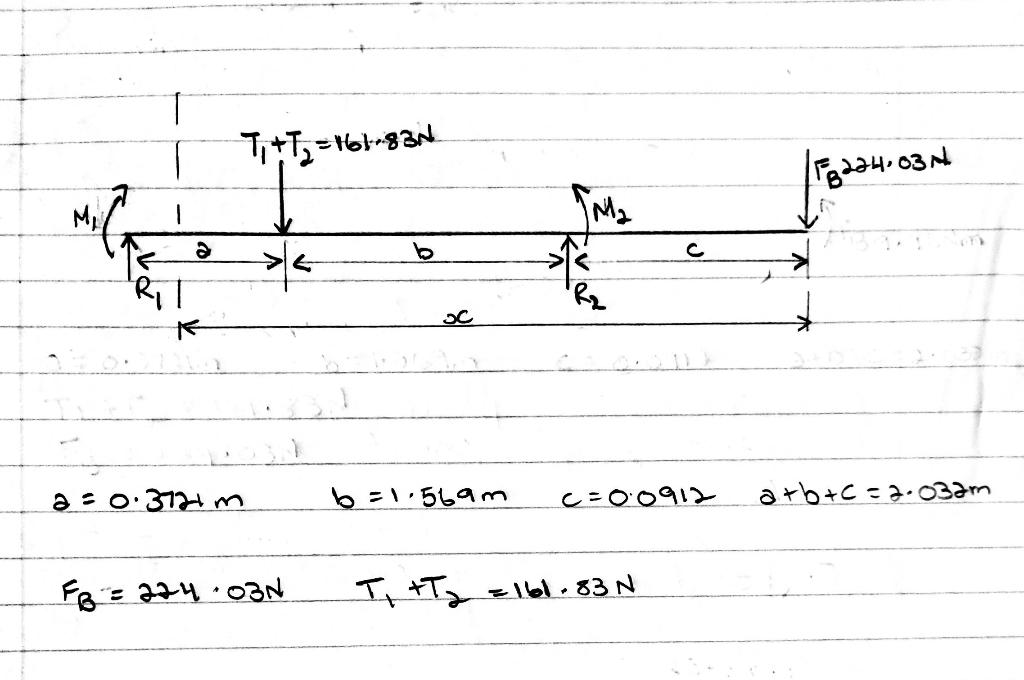 T₁+T₂=161.83N
F_B 224.03N
M₁
M₂
a
b
c
R₁
R₂
x
a = 0.3721m b = 1.569m c = 0.0912 a+b+c = 2.032m
F_B = 224.03N T₁+T₂ = 161.83N